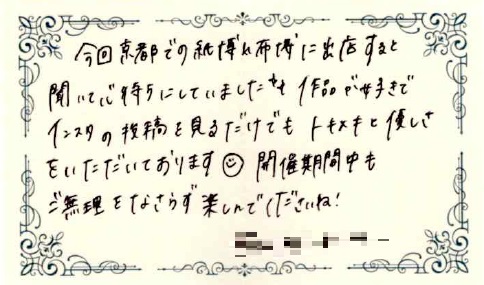 今回京都での紙博&布博に出店すると
聞いて心待ちにしていました!! 作品が好きで
インスタの投稿を見るだけでも トキメキと優しさ
をいただいております☺ 開催期間中も
ご無理をなさらず楽しんでくださいね!